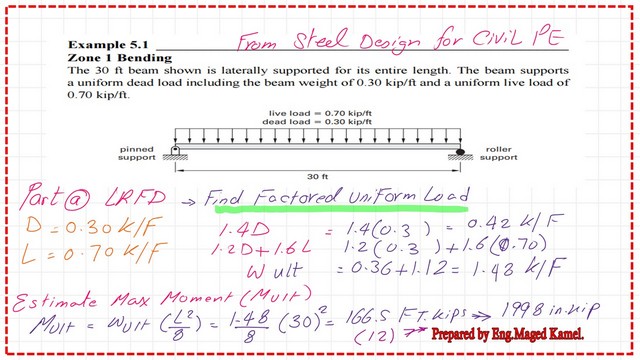 Example 5.1 From Steel Design for Civil PE
Zone 1 Bending
The 30 ft beam shown is laterally supported for its entire length. The beam supports
a uniform dead load including the beam weight of 0.30 kip/ft and a uniform live load of
0.70 kip/ft.
live load = 0.70 kip/ft
dead load = 0.30 kip/ft
pinned support
roller support
30 ft
Part (a) LRFD → Find Factored Uniform Load
D = 0.30 K/F 1.4D = 1.4(0.3) = 0.42 K/F
L = 0.70 K/F 1.2D+1.6L 1.2(0.3) + 1.6(0.70)
W ult = 0.36+1.12 = 1.48 K/F
Estimate Max Moment (Mult)
Mult = Wult (L²/8) = 1.48/8 (30)² = 166.5 FT.kips ⇒ 1998 in.kip
(12)
Prepared by Eng.Maged Kamel.